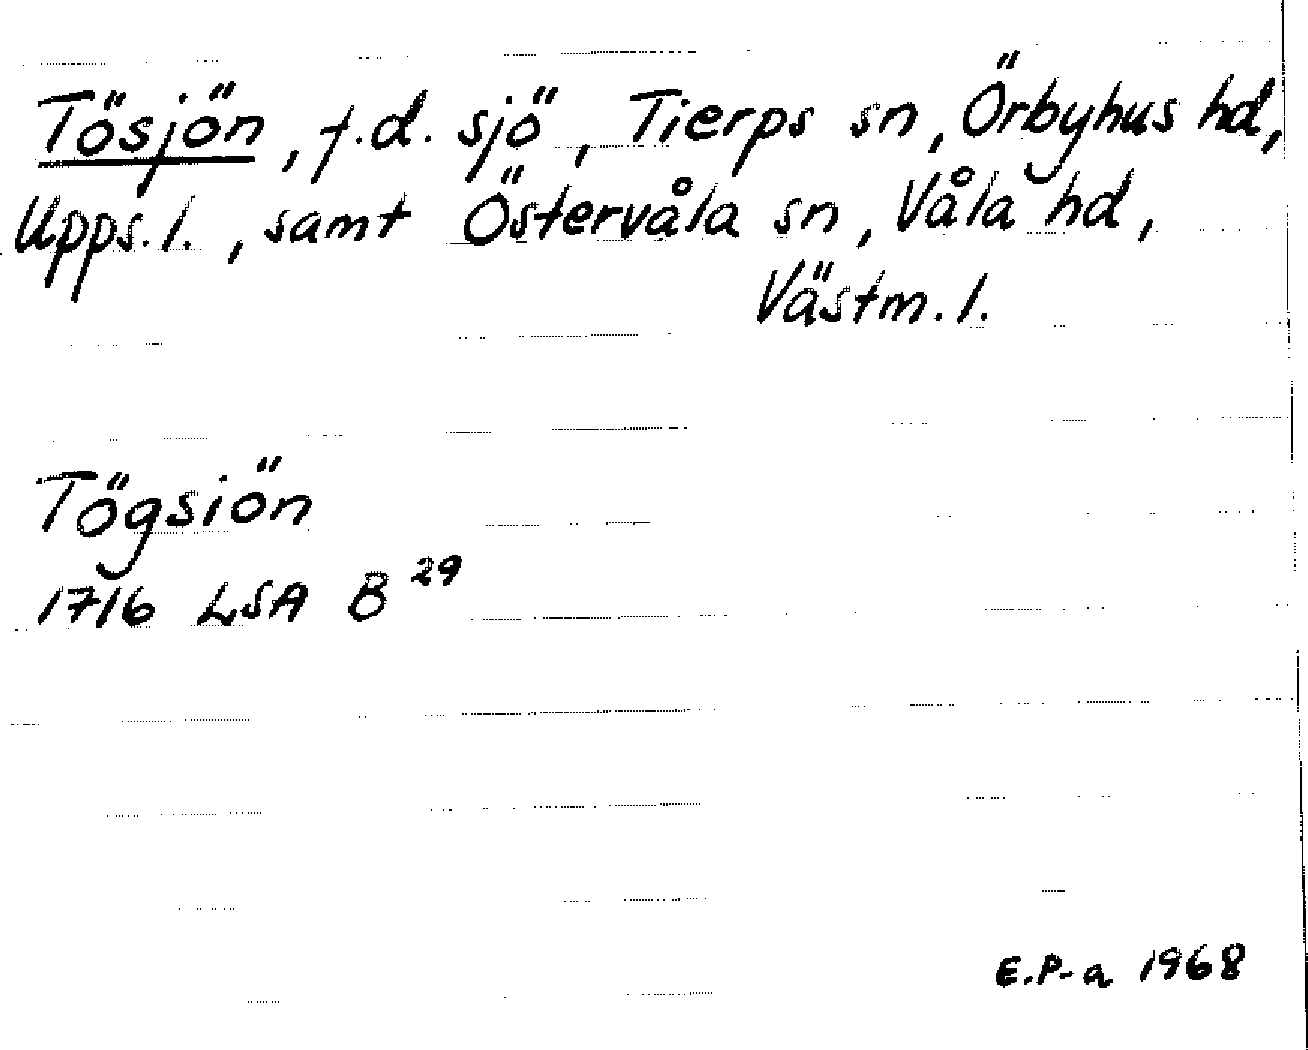 Tösjön, f.d. sjö, Tierps sn, Örbyhus hd,
Upps. l., samt Östervåla sn, Våla hd,
Västm. l.
Tögsiön
1716 LSA B 29
E.P-a 1968